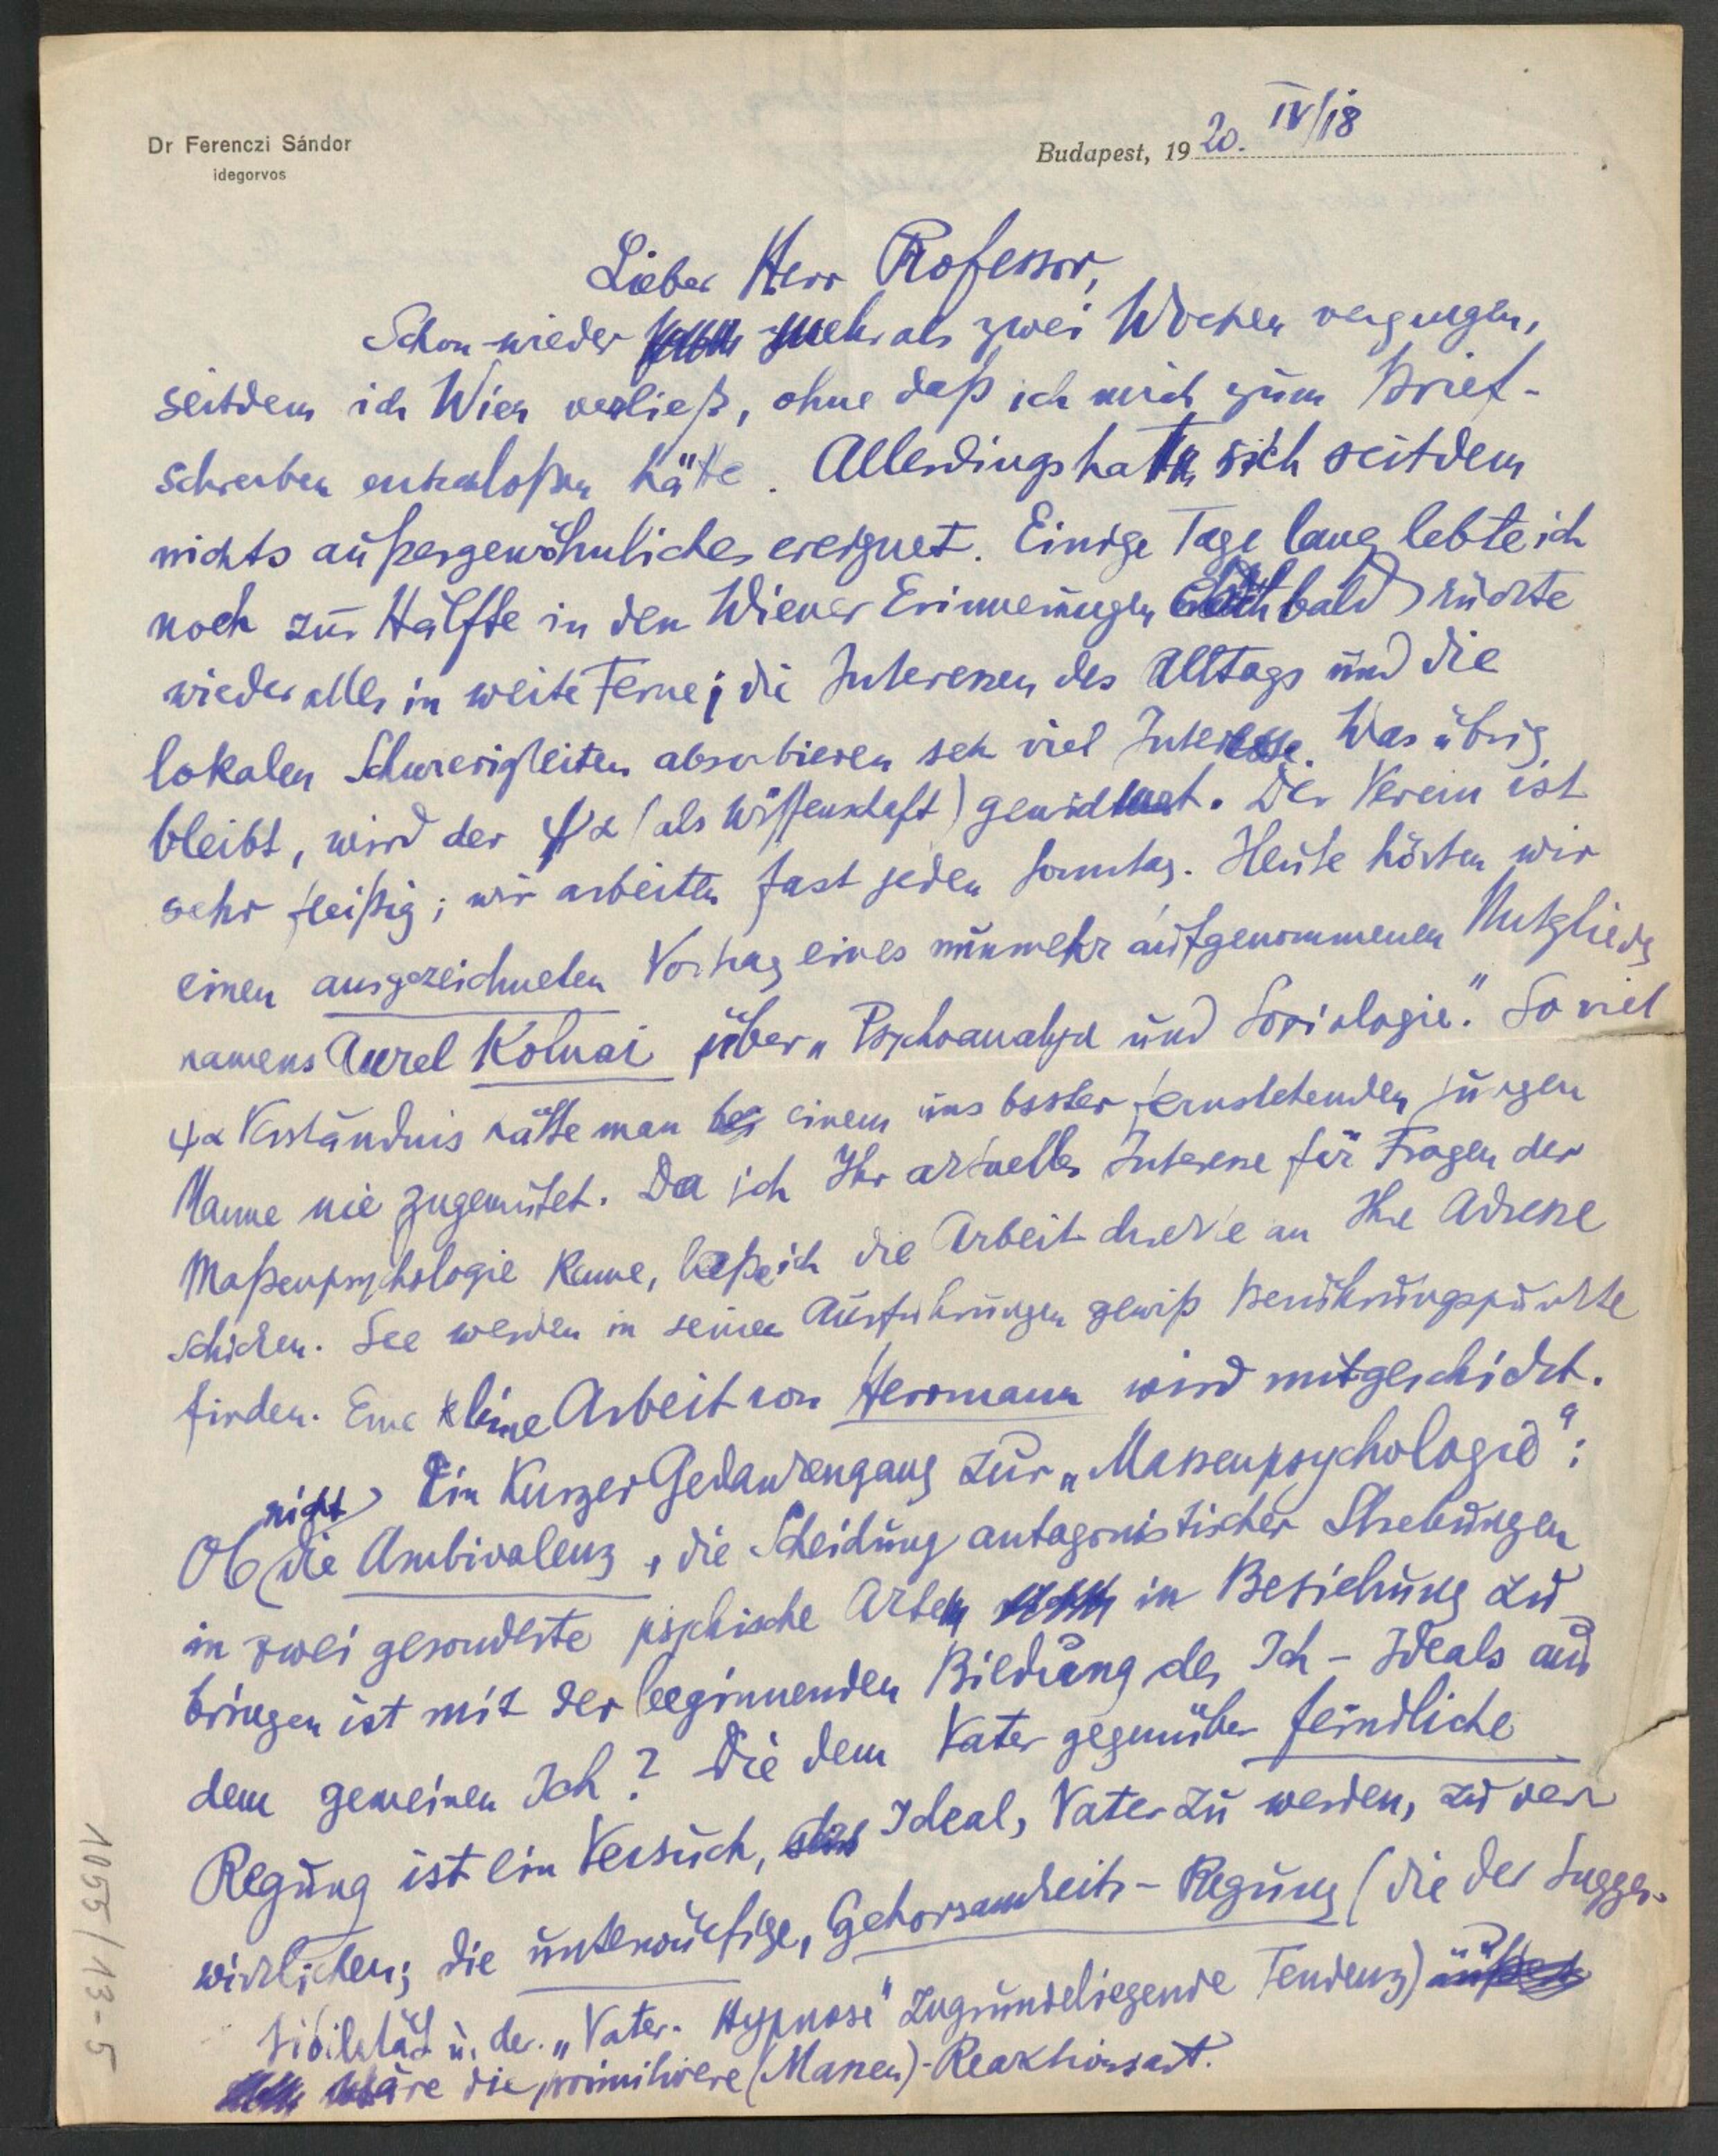 Dr Ferenczi Sándor
idegorvos
Budapest, 1920. IV/18
Lieber Herr Professor,
Schon wieder mehr als zwei Wochen vergangen,
seitdem ich Wien verließ, ohne daß ich mich zum Brief-
schreiben entschloßen hätte. Allerdings hatte sich seitdem
nichts außergewöhnliches ereignet. Einige Tage lang lebte ich
noch zur Hälfte in den Wiener Erinnerungen bald rückte
wieder alles in weite Ferne; die Interessen des Alltags und die
lokalen Schwierigkeiten absorbieren sehr viel Interesse. Was übrig
bleibt, wird der ψα (als Wissenschaft) gewidmet. Der Verein ist
sehr fleißig; wir arbeiten fast jeden Sonntag. Heute hörten wir
einen ausgezeichneten Vortrag eines nunmehr aufgenommenen Mitglieds
namens Aurel Kolnai über „Psychoanalyse und Soziologie." So viel
ψα Verständnis hätte man bei einem uns bisher fernstehenden jungen
Manne nie zugemutet. Da ich Ihr aktuelles Interesse für Fragen der
Maßenpsychologie kenne, ließ ich die Arbeit direkte an Ihre Adresse
schicken. Sie werden in seinen Ausführungen gewiß Berührungspunkte
finden. Eine kleine Arbeit von Herrmann wird mitgeschickt.
Ein kurzer Gedankengang zur „Massenpsychologie":
Ob nicht die Ambivalenz, die Scheidung antagonistischer Strebungen
in zwei gesonderte psychische Akten in Beziehung zu
bringen ist mit der beginnenden Bildung des Ich-Ideals aus
dem gemeinen Ich? Die dem Vater gegenüber feindliche
Regung ist ein Versuch, das Ideal, Vater zu werden, zu ver
wirklichen; die unterwürfige, Gehorsamkeits-Regung (die der Sugges-
tibilität u. der „Vater-Hypnose" zugrundeliegende Tendenz)
wäre die primitivere (Massen)-Reaktionsart.
1055/13-5